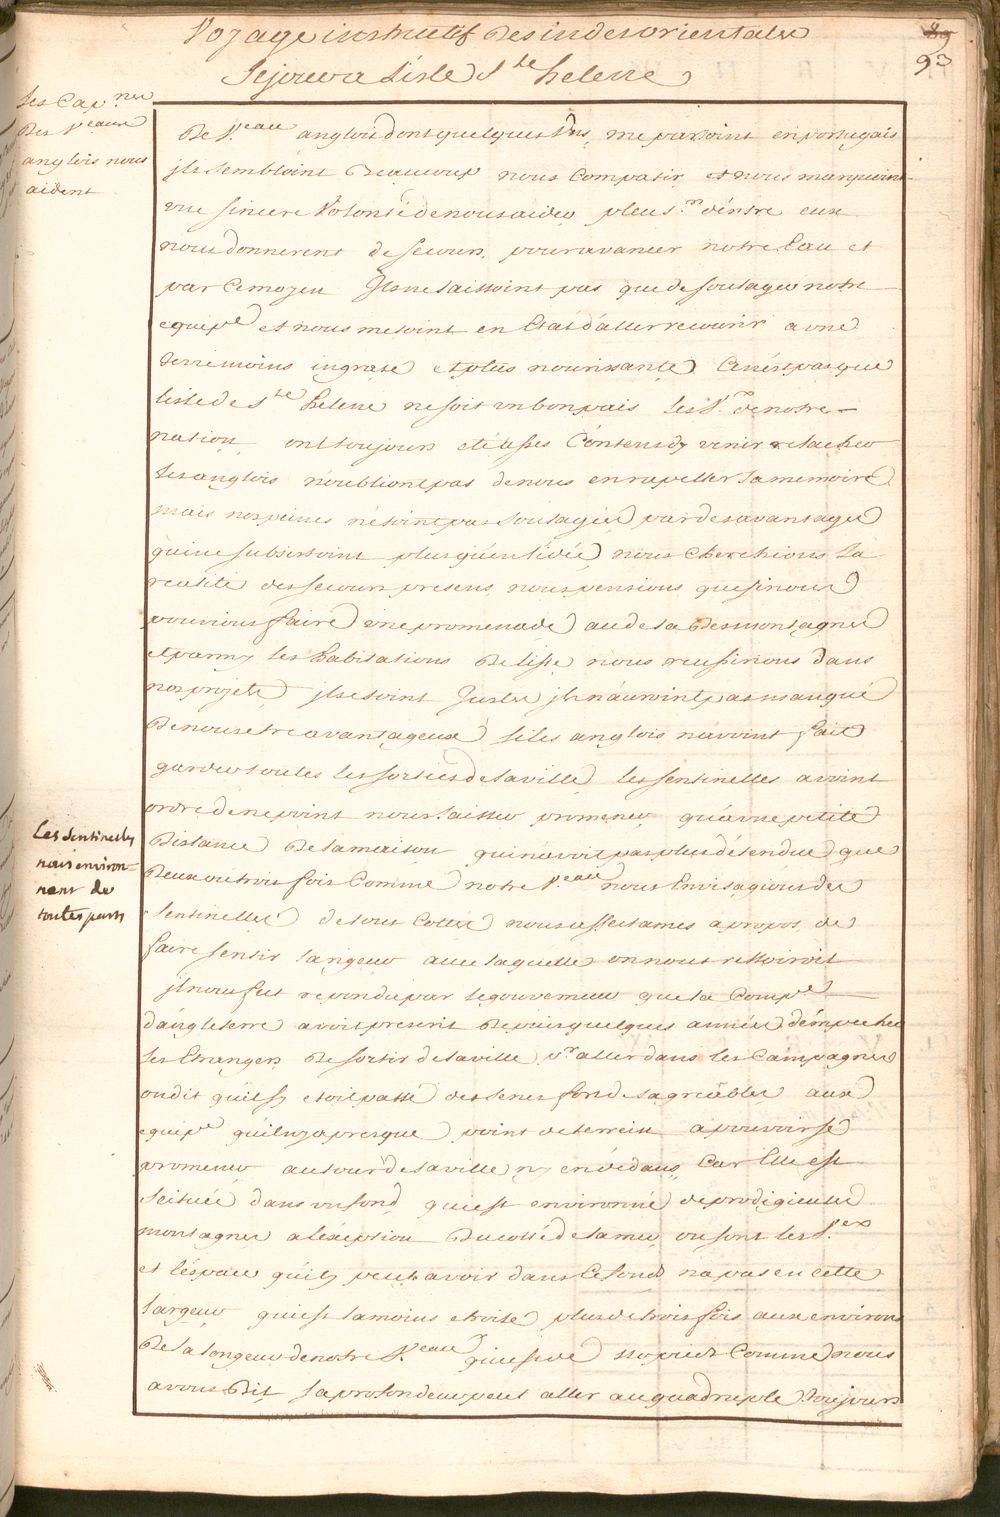 Voyage instructif Des indes orientales
89
Sejour a Lisle Ste helene
93
Les Cap.nes
Des V.eaux
anglois nous
aident
De V.eau anglois dont quelques Vns me parloint en portugais
jls sembloint Beaucoup nous Compatir et nous marquoint
vne sincere Volonté de nous aider plus.rs d'éntre eux
nous donnerent de secours pour avancer notre Eau et
par Ce moyen Jls ne laissoint pas que de soulager notre
equip.e et nous metoint en Etat d'aller recourir a vne
terre moins ingrate et plus nourissante Ce n'ést pas que
lisle de Ste helene ne soit vn bon pais les V.x de notre
nation ont toujours etésses Contens dy venir relacher
Les anglois n'oublient pas de nous en rapeller La memoire
mais nos peines n'étoint pas soulagées par des avantages
qui ne subsistoint plus qu'en lidée nous Cherchions La
realité des secours presens nous pensions que si nous
pouvions faire vne promenade au de la Des montagnes
et parmy les habitations De lisle nous reussirions Dans
nos projets jls etoint Justes jls n'auroint pas manqué
De nous etre avantageux si les anglois n'avoint fait
garder toutes les sorties de la ville les sentinelles avoint
ordre de ne point nous laisser promener qu'a vne petite
Distance De la maison qui n'avoit pas plus d'étendue que
Deux ou trois fois Comme notre V.eau nous Envisagions des
Les Sentinelles
nous environ-
nent de
toutes parts
sentinelles de tous Cottes nous affectames a propos de
faire sentir La rigeur avec laquelle on nous recevoit
jl nous fut repondu par le gouverneur que la Comp.e
d'angleterre avoit prescrit Depuis quelques années d'émpecher
Les Etrangers De sortir de la ville p.r aller dans les Campagnes
on dit qu'il s'y etoit passé des senes fort desagréables aux
equip.e qu'il ny a presque point de terrein a pouvoir se
promener autour de la ville ny en dedans Car Elle est
scituée dans vn fond qui est environné de prodigieuses
montagnes a l'exception Du cotté de la mer ou sont les V.ex
et l'éspace qu'il y peut avoir dans Ce fond na pas en Cette
Largeur qui est la moins etroite plus de trois fois aux environs
De la longeur de notre V.eau qui est de 110 pieds Comme nous
avons Dit La profondeur peut aller au quadruple toujours